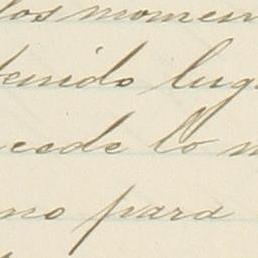 los momen
tenido lug
cede lo m
no para